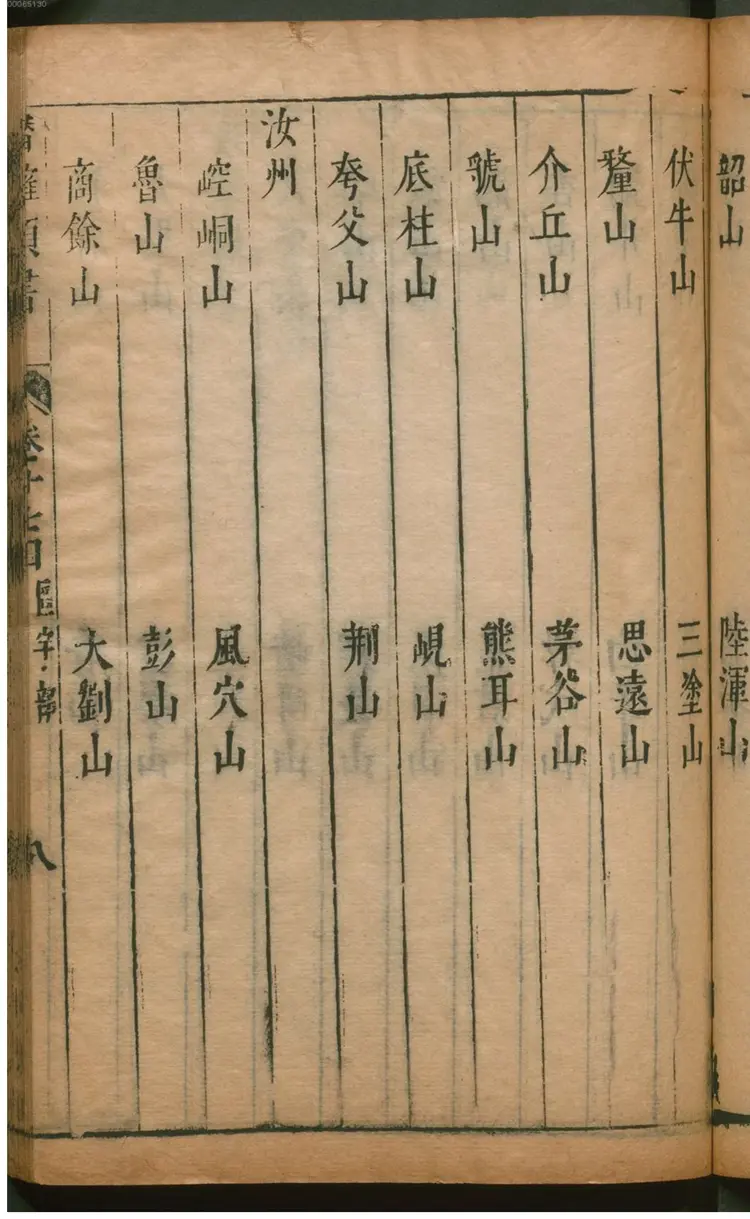 00065130
韶山 陸渾山
伏牛山 三塗山
釐山 思遠山
介丘山 茅谷山
虢山 熊耳山
底柱山 峴山
夸父山 荆山
汝州
崆峒山 風穴山
魯山 彭山
商餘山 大劉山
區宇部 八